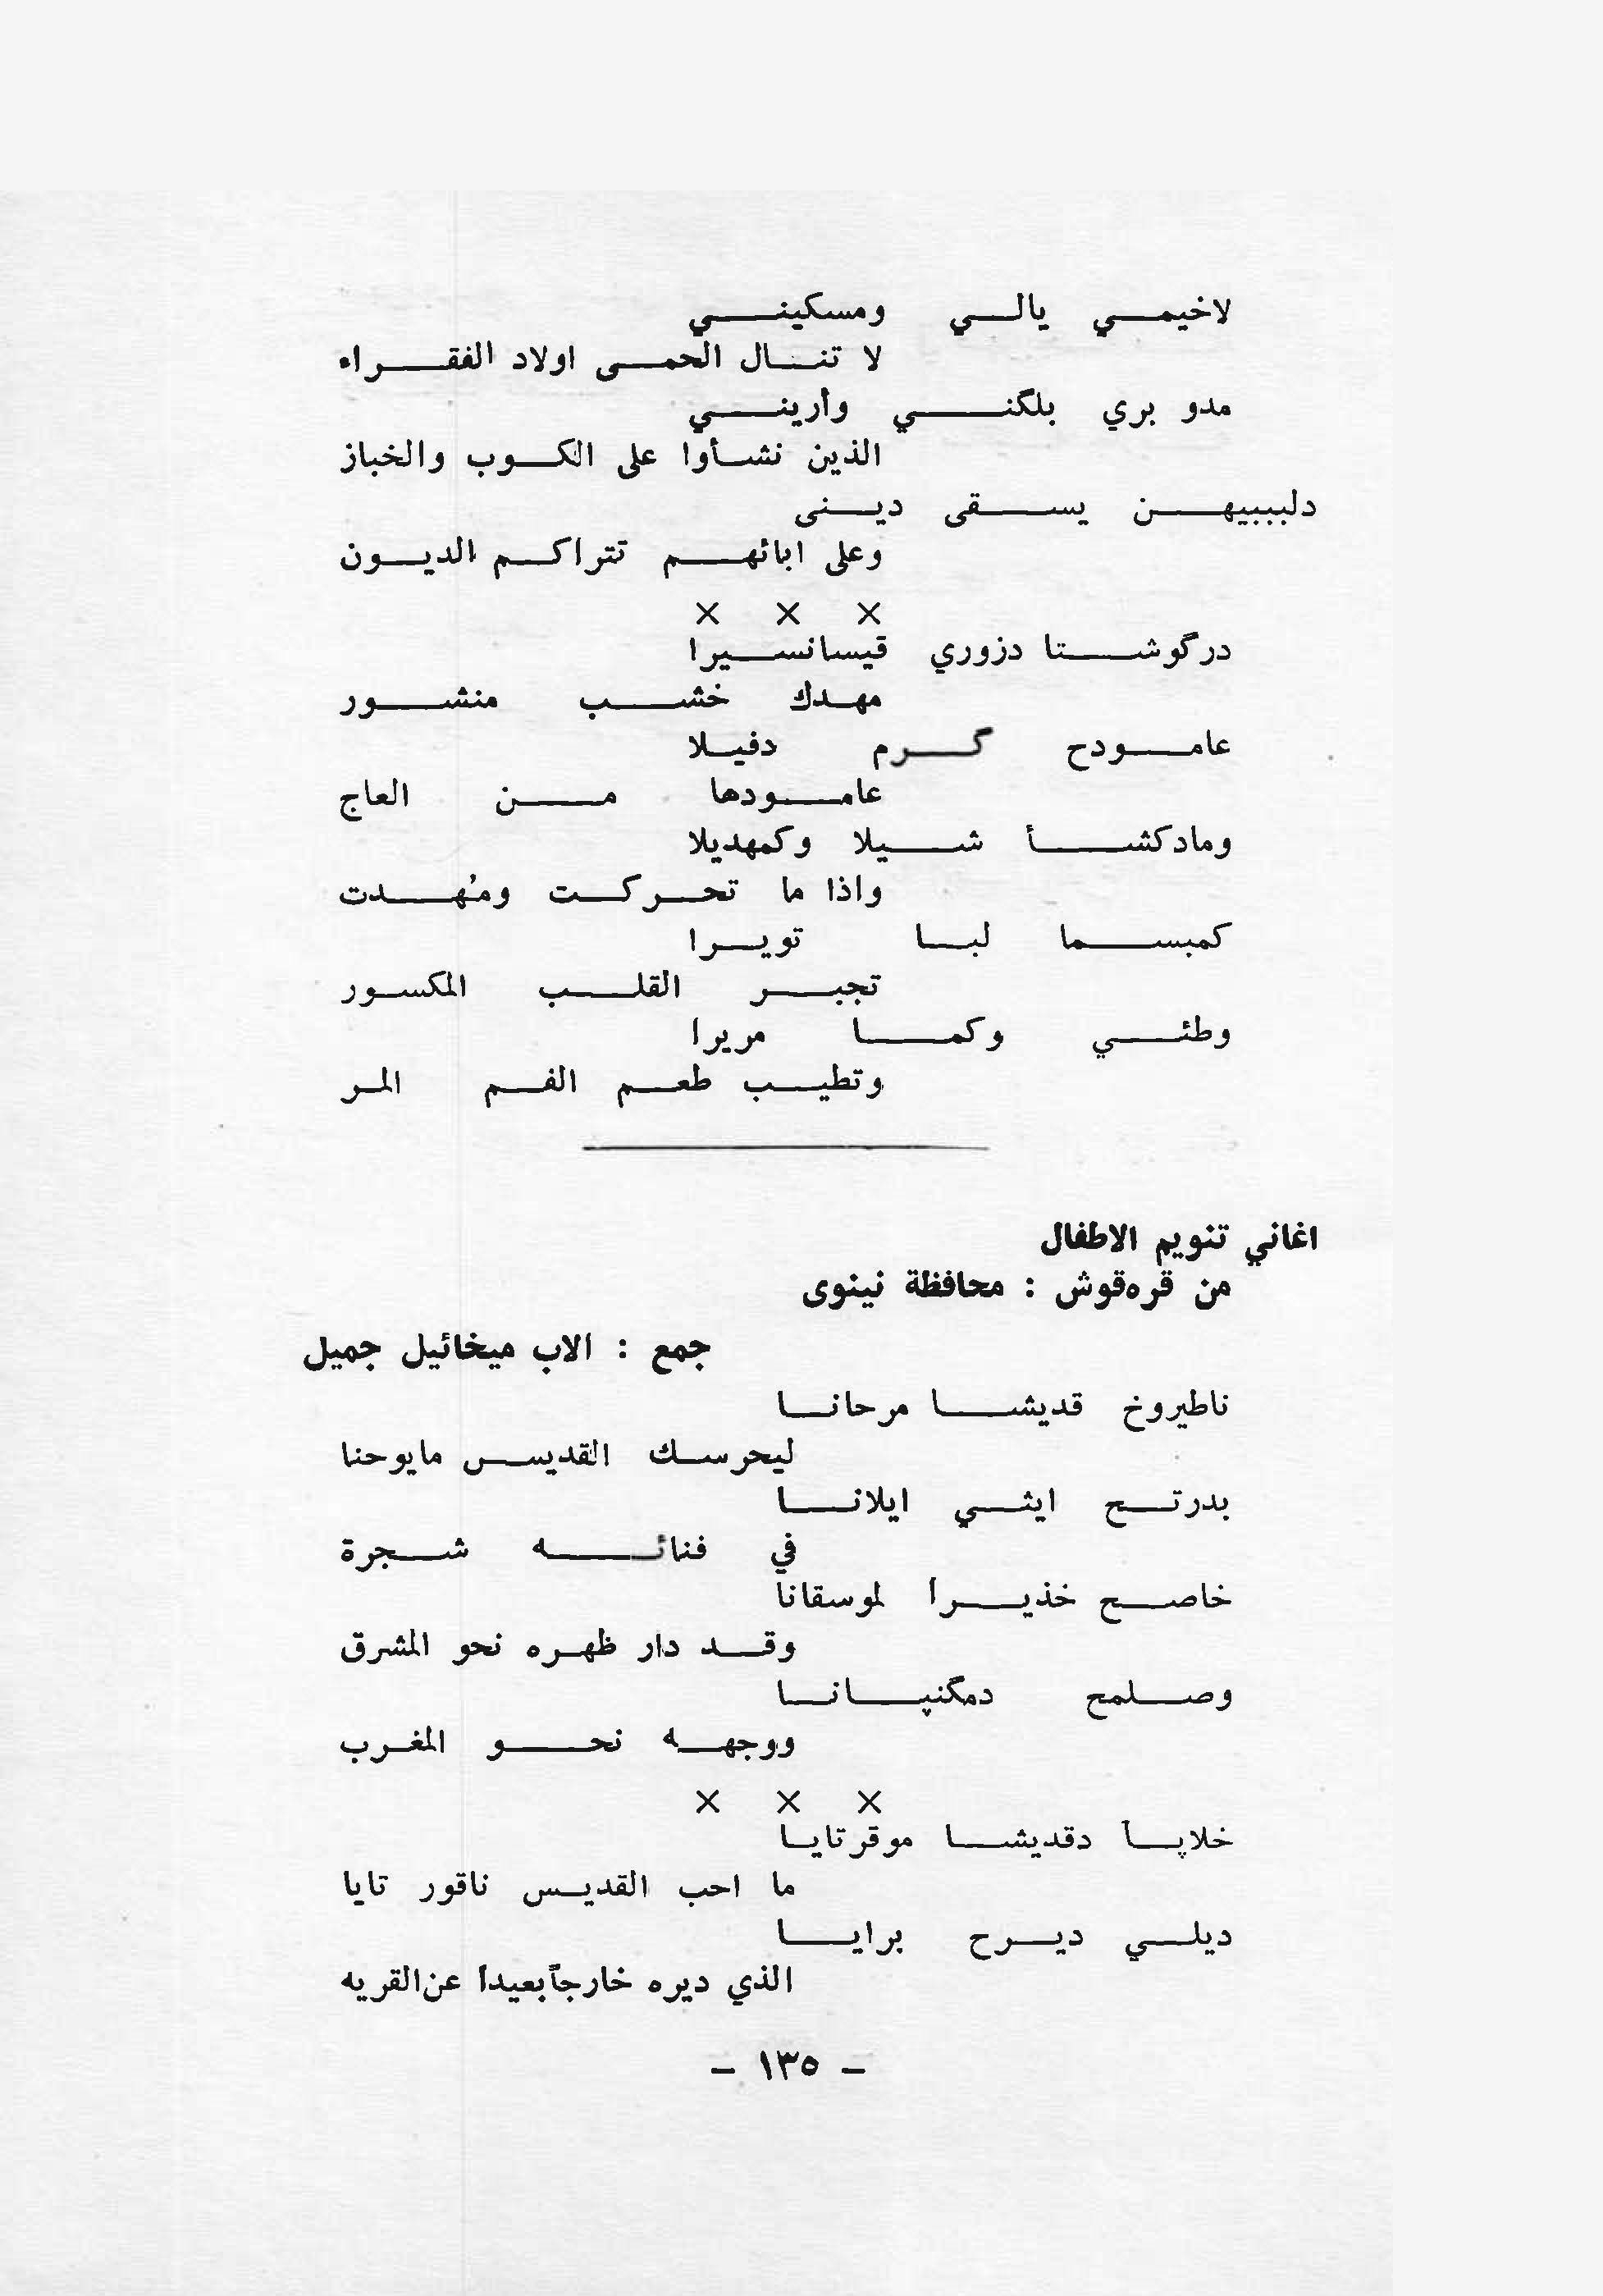 لاخيمي يالي ومسكيني
لا تنال الحمى اولاد الفقراء
مدو بري بلگني وأريني
الذين نشأوا على الكوب والخباز
دلبببيهن يسقى دينى
وعلى ابائهم تتراكم الديون
× × ×
درگوشتا دزوري قيسانسيرا
مهدك خشب منشور
عامودح گرم دفيلا
عامودها من العاج
ومادكشأ شيلا وكمهديلا
واذا ما تحركت ومُهدت
كمبسما لبا تويرا
تجبر القلب المكسور
وطئي وكما مريرا
وتطيب طعم الفم المر
اغاني تنويم الاطفال
من قره‌قوش : محافظة نينوى
جمع : الاب ميخائيل جميل
ناطيروخ قديشا مرحانا
ليحرسك القديس مايوحنا
بدرتح ايثي ايلانا
في فنائه شجرة
خاصح خذيرأ لموسقانا
وقد دار ظهره نحو المشرق
وصلمح دمگنپانا
ووجهه نحو المغرب
× × ×
خلاپأ دقديشا موقرتايا
ما احب القديس ناقور تايا
ديلي ديرح برايا
الذي ديره خارجاً بعيداً عن القريه
– ١٣٥ –